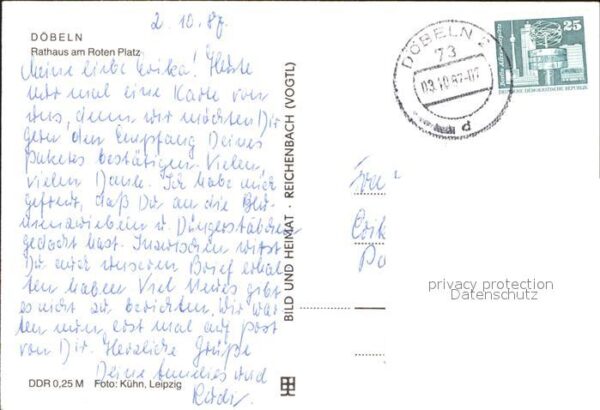 2.10.87.
DÖBELN
Rathaus am Roten Platz
Meine liebe Erika! Heute
nur mal eine Karte von
uns, denn wir möchten Dir
gern den Empfang Deines
Paketes bestätigen. Vielen,
vielen Dank. Ich habe mich
gefreut, daß Du an die Blu-
menzwiebeln u. Düngerstäbchen
gedacht hast. Inzwischen wirst
Du auch unseren Brief erhal-
ten haben. Viel Neues gibt
es nicht zu berichten. Wir war-
ten nun erst mal auf Post
von Dir. Herzliche Grüße
Deine und
Rudi.
DDR 0,25 M Foto: Kühn, Leipzig
BILD UND HEIMAT · REICHENBACH (VOGTL)
DÖBELN 2
73
03.10.87-07
d
25
DEUTSCHE DEMOKRATISCHE REPUBLIK
Frau
Erik
privacy protection
Datenschutz